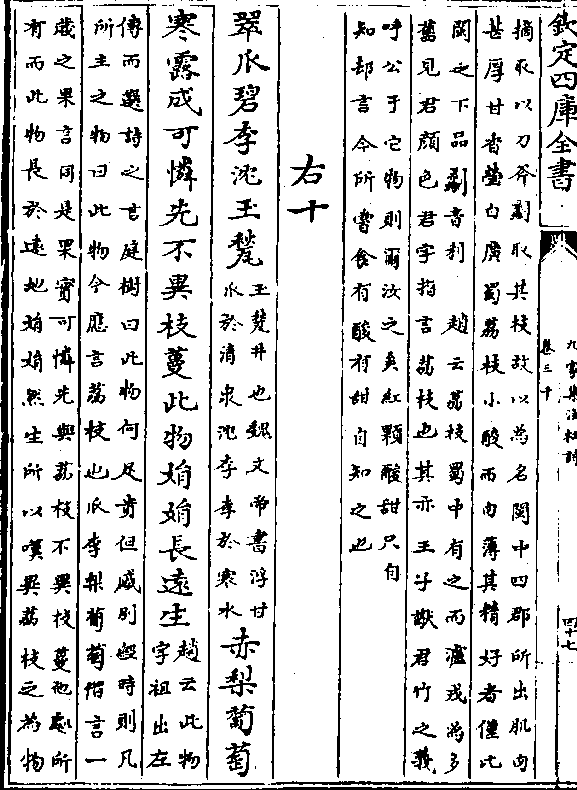 欽定四庫全書
九家集注杜詩
卷三十
四十七
摘取以刀斧劙取其枝故以為名閩中四郡所出肌肉
甚厚甘香瑩白廣蜀荔枝小酸而肉薄其精好者僅比
閩之下品劙音利 趙云荔枝蜀中有之而瀘戎為多
舊見君顔色君字指言荔枝也其亦王子猷君竹之義
呼公于它物則爾汝之矣紅顆酸甜只自
知却言今所嘗食有酸有甜自知之也
右十
翠瓜碧李沈玉甃
玉甃井也魏文帝書浮甘
瓜於清泉沈李李於寒水
赤梨葡萄
寒露成可憐先不異枝蔓此物娟娟長遠生
趙云此物
字祖出左
傳而選詩之言庭樹曰此物何足貴但感别經時則凡
所主之物曰此物今應言荔枝也瓜李梨葡萄偕言一
歳之果言同是果實可憐先與荔枝不異枝蔓也處所
有而此物長於逺地娟娟然生所以嘆異荔枝之為物